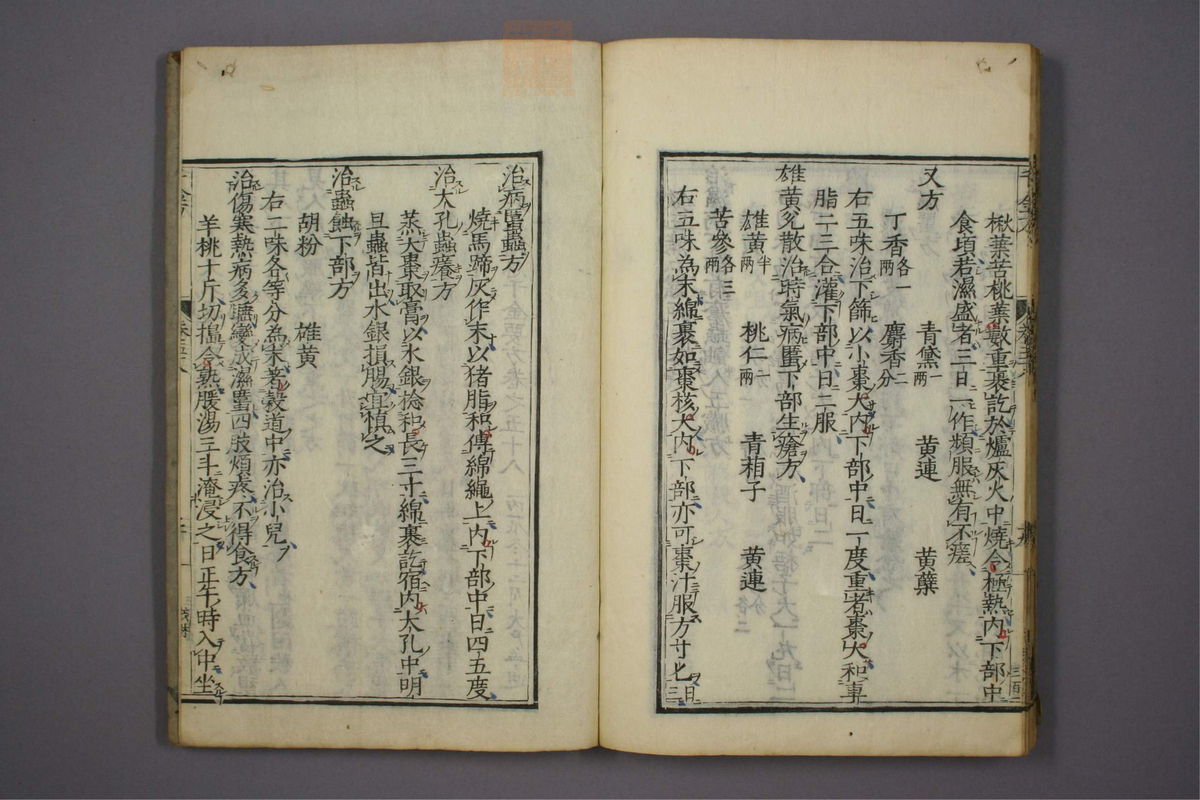 楸葉苦桃葉數重裹訖於爐灰火中燒令極熱内下部中
食頃若濕盛者三日一作頻服無有不瘥
又方
丁香各一兩　青黛一兩　黄連　黄蘗　麝香二分
右五味治下篩以小棗大内下部中日一度重者棗大和車
脂二三合灌下部中日二服
雄黄兊散治時氣病䘌下部生瘡方
雄黄半兩　桃仁一兩　青葙子　黄連
苦參各三兩
右五味為末綿裹如棗核大内下部亦可棗汁服方寸匕日三
治病䘌蟲方
燒馬蹄灰作末以猪脂和傅綿繩上内下部中日四五度
治大孔蟲癢方
蒸大棗取膏以水銀捻和長三寸綿裹訖宿内大孔中明
旦蟲皆出水銀損腸宜慎之
治蟲蝕下部方
胡粉　雄黄
右二味各等分為末著穀道中亦治小兒
治傷寒熱病多變成濕䘌四肢煩疼不得食方
羊桃十斤切搵令熟暖湯三斗淹浸之日正午時入中坐